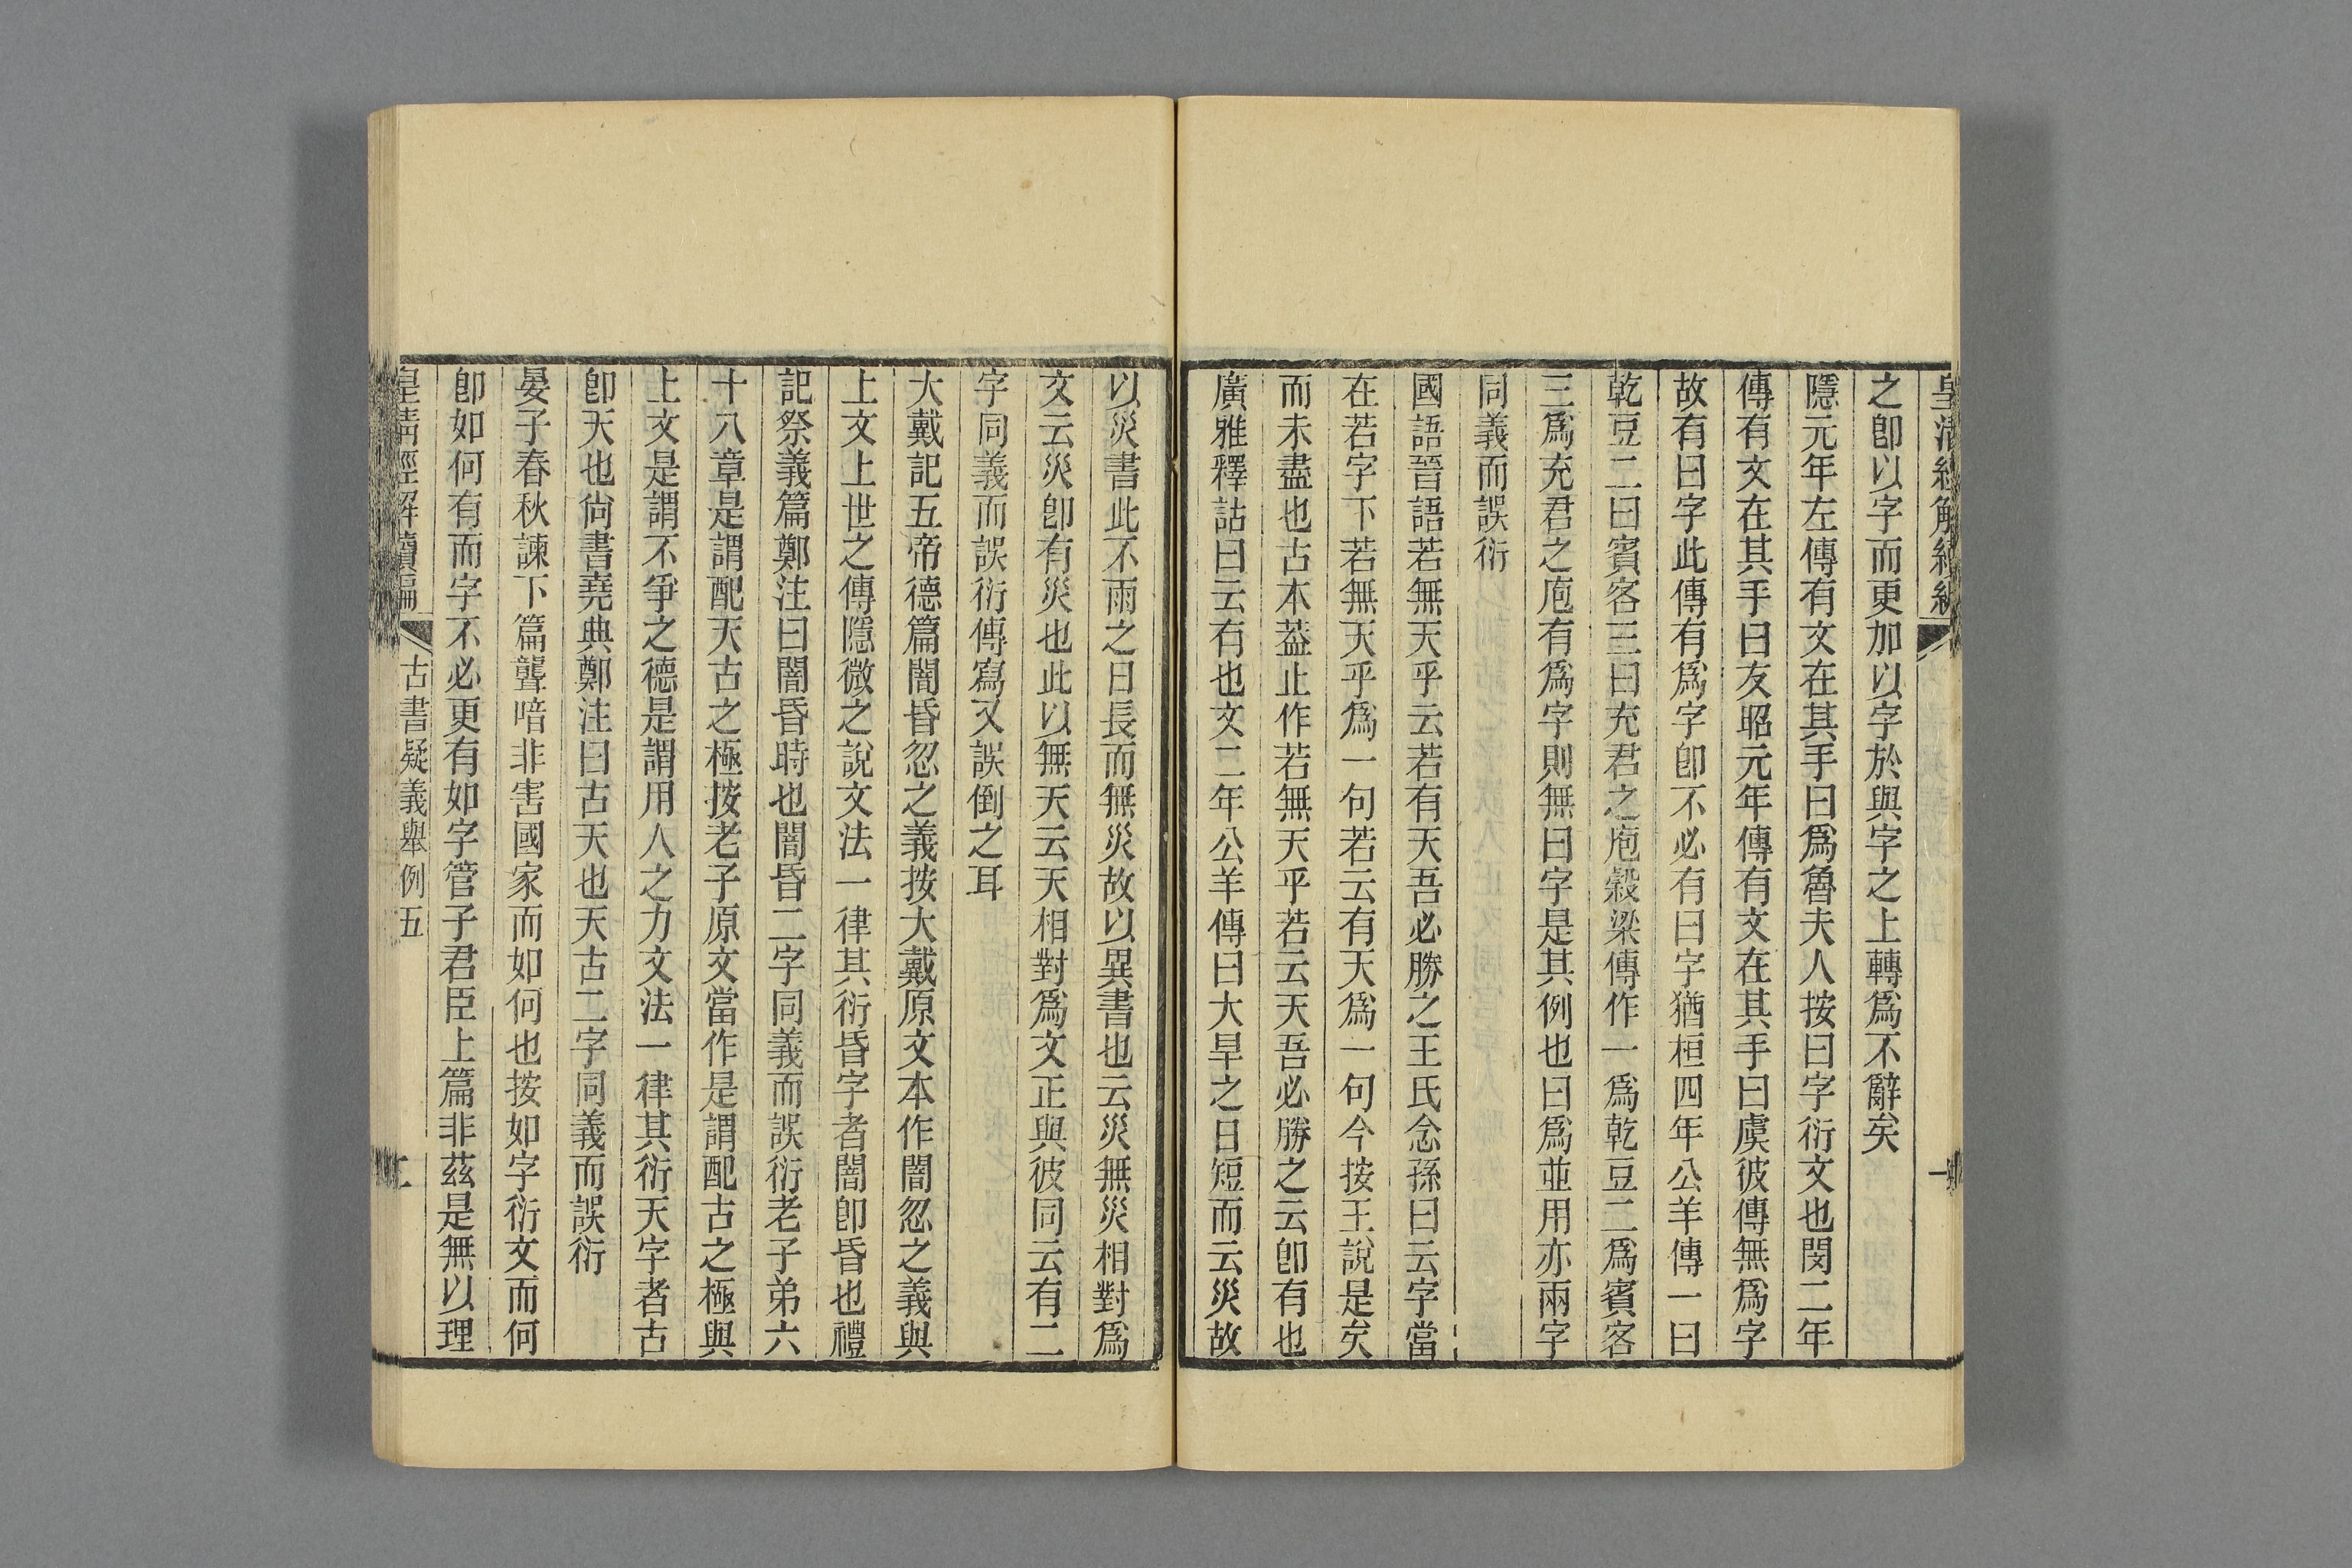 皇清經解續編
之卽以字而更加以字於與字之上轉爲不辭矣
隱元年左傳有文在其手曰爲魯夫人按曰字衍文也閔二年
傳有文在其手曰友昭元年傳有文在其手曰虞彼傳無爲字
故有曰字此傳有爲字卽不必有曰字猶桓四年公羊傳一曰
乾豆二曰賓客三曰充君之庖穀梁傳作一爲乾豆二爲賓客
三爲充君之庖有爲字則無曰字是其例也曰爲並用亦兩字
同義而誤衍
國語晉語若無天乎云若有天吾必勝之王氏念孫曰云字當
在若字下若無天乎爲一句若云有天爲一句今按王說是矣
而未盡也古本葢止作若無天乎若云天吾必勝之云卽有也
廣雅釋詁曰云有也文二年公羊傳曰大旱之日短而云災故
以災書此不雨之日長而無災故以異書也云災無災相對爲
文云災卽有災也此以無天云天相對爲文正與彼同云有二
字同義而誤衍傳寫又誤倒之耳
大戴記五帝德篇闇昏忽之義按大戴原文本作闇忽之義與
上文上世之傳隱微之說文法一律其衍昏字者闇卽昏也禮
記祭義篇鄭注曰闇昏時也闇昏二字同義而誤衍老子弟六
十八章是謂配天古之極按老子原文當作是謂配古之極與
上文是謂不爭之德是謂用人之力文法一律其衍天字者古
卽天也尙書堯典鄭注曰古天也天古二字同義而誤衍
晏子春秋諫下篇聾喑非害國家而如何也按如字衍文而何
卽如何有而字不必更有如字管子君臣上篇非茲是無以理
皇清經解續編
古書疑義舉例五